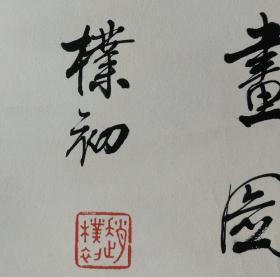 畫圖
樸初
趙樸初